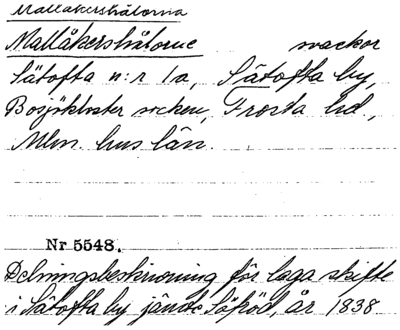 Mallåkershålorna
Mallåkershålorne svackor
Sätofta n:r 1a, Sätofta by,
Bosjökloster socken, Frosta hd,
Mlm. hus län.
Nr 5548.
Delningsbeskrivning för laga skifte
i Sätofta by jämte Söröd, år 1838